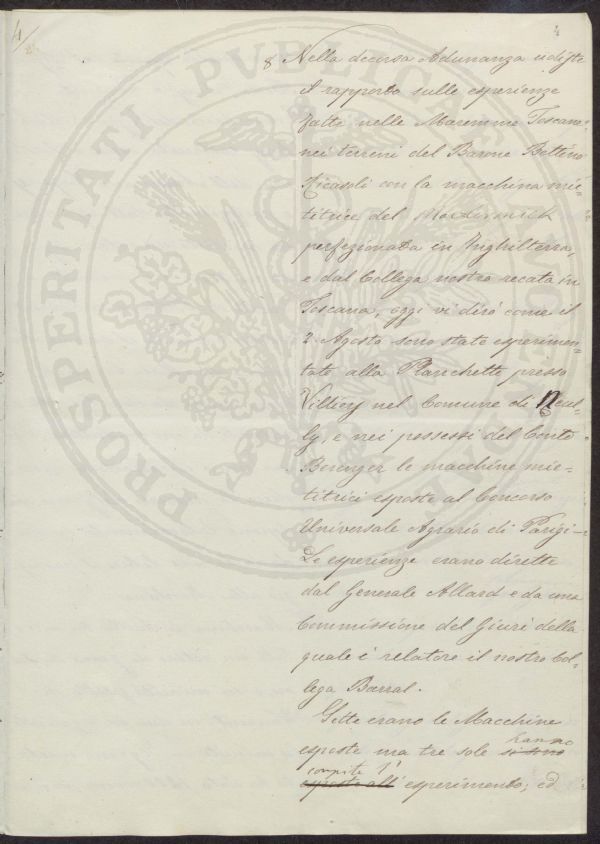 4
4
8 Nella decorsa Adunanza udiste
il rapporto sulle esperienze
fatte nelle Maremme Toscane
nei terreni del Barone Bettino
Ricasoli con la macchina mie-
titrice del
perfezionata in Inghilterra,
e dal Collega nostro recata in
Toscana, oggi vi dirò come il
2. Agosto sono state esperimen-
tate alla Planchette presso
Villiery nel Comune di Neul-
ly, e nei possessi del Conte
Beringer le macchine mie-
titrici esposte al Concorso
Universale Agrario di Parigi-
Le esperienze erano dirette
dal Generale Allard e da una
Commissione del Giurì della
quale è relatore il nostro Col-
lega Barral.
Sette erano le Macchine
esposte ma tre sole si sono hanno
esposte all' compite l' esperimento; ed
PROSPERITATI PVBLICAE AVGENDAE